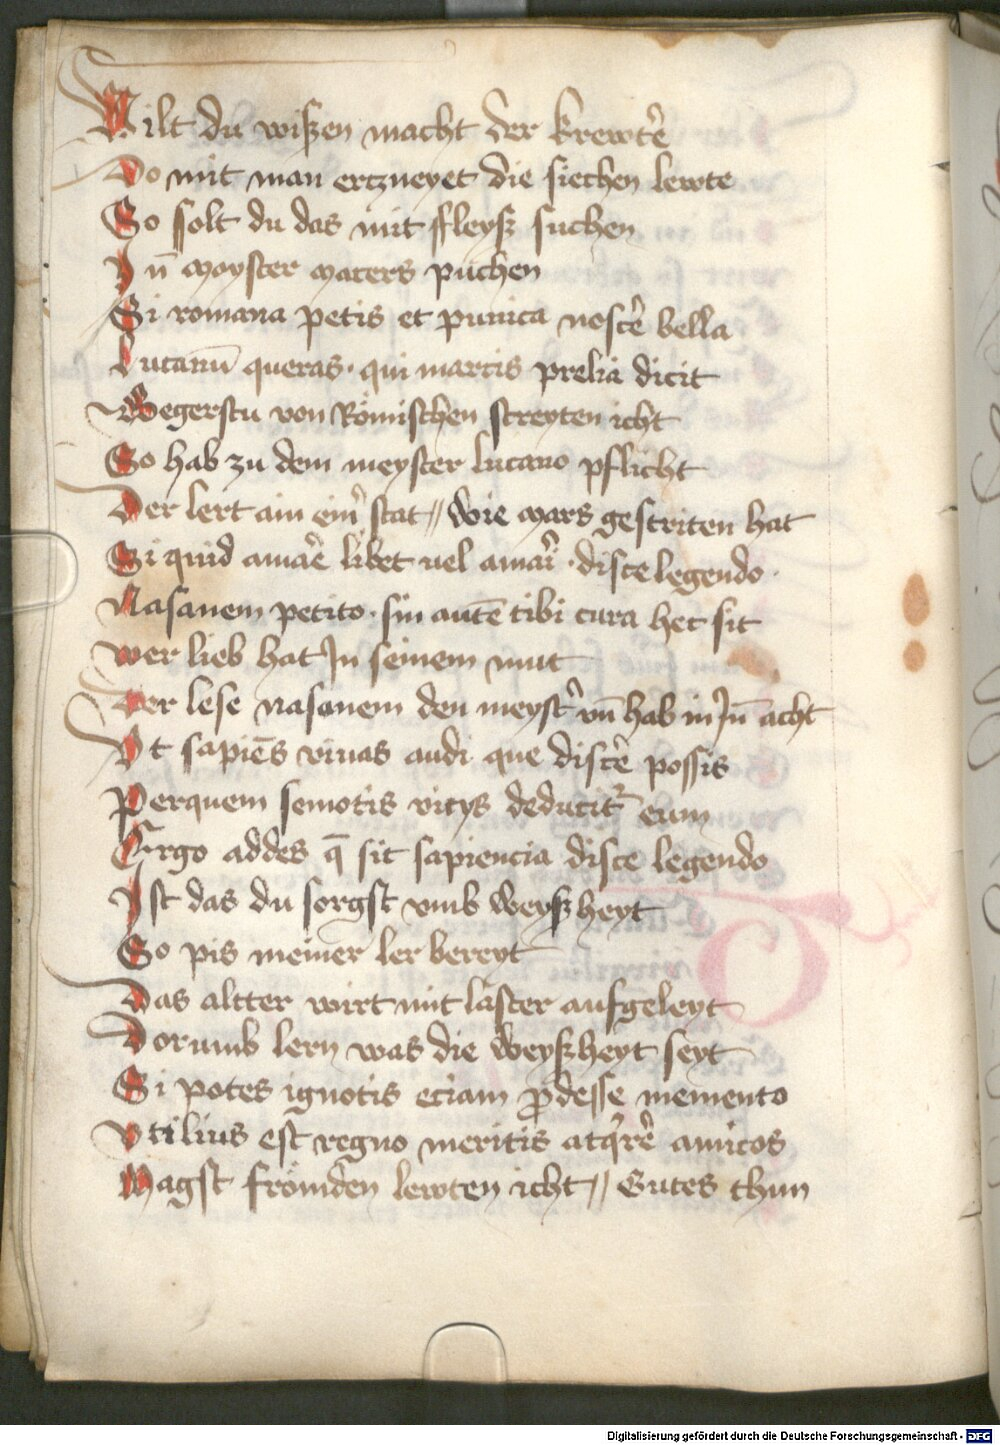 Wilt du wißen macht der krewt̄e
Do mit man ertzneyet die siechen lewte
So solt du das mit fleyß suchen
In̄ mayster maters puchen
Si romana petis et punica nosc̄e bella
Lucanū queras · qui martis prelia dicit
Begerstu von Römischen streyten icht
So hab zu dem meyster lucano pflicht
Der lert ain eim̄ stat // wie mars gestriten hat
Si quid amar̄e libet uel amar̄i · disce legendo ·
Nasanem petito · sin autē tibi cura hec sit
wer lieb hat In seinem mut
Der lese nasanem den meyst̄ vn̄ hab in In̄ acht
Vt sapiēs viuas audi que disc̄e possis
Perquem semotis vicys deducit᷑ euum
Ergo addes q̄ sit sapiencia disce legendo
Ist das du sorgst vmb weyßheyt
So pis meiner ler bereyt
Das altter wirt mit laster aufgeleyt
Dorumb lern was die weyßheyt seyt
Si potes ignotis eciam ꝓdesse memento
Vtilius est regno meritis atq̄rēe amicos
Magst frömden lewten icht // Gutes thun
Digitalisierung gefördert durch die Deutsche Forschungsgemeinschaft - DFG